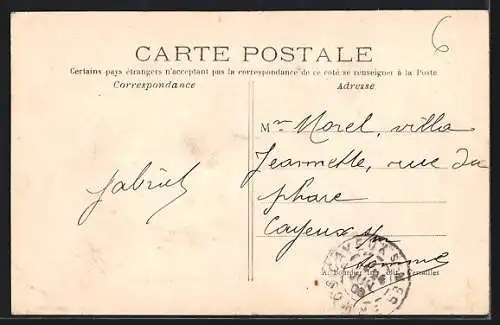 6
CARTE POSTALE
Certains pays étrangers n'acceptant pas la correspondance de ce coté se renseigner à la Poste
Correspondance
Adresse
Mr Morel, villa
Jeannette, rue du
phare
Cayeux s/m
Somme
Gabriel
CAYEUX-S-MER